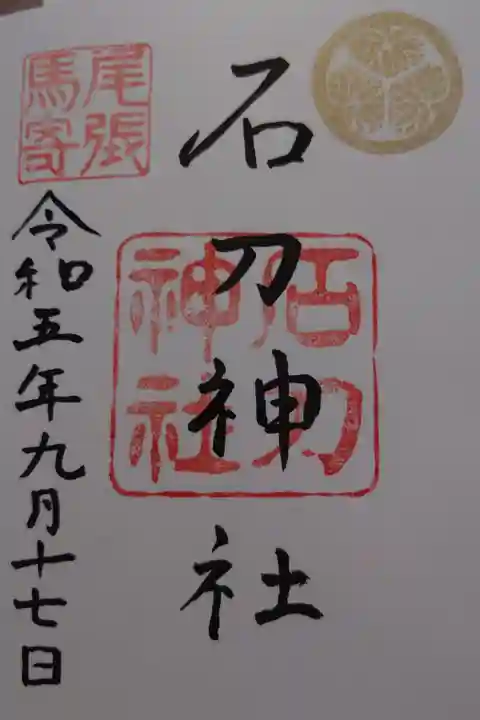 石刀神社
石刀
神社
尾張
馬寄
令和五年九月十七日